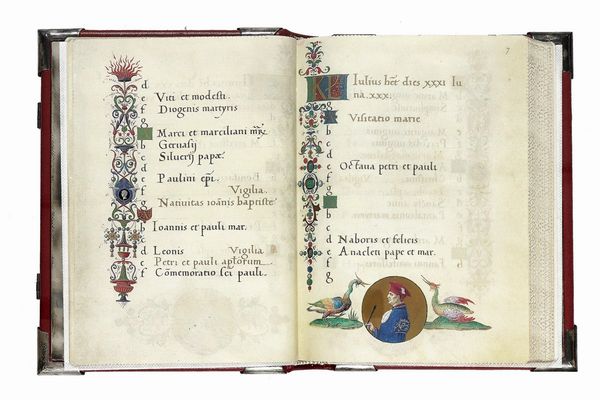 d
e Viti et modesti.
f Diogenis martyris
g
Marci et marciliani mr̃y.
b Gervasij
c Silverij papae.
d
e Paulini ep̃i.
f Vigilia.
g Nativitas ioãnis baptiste
b Ioannis et pauli mar.
c
d Leonis Vigilia
e Petri et pauli aptorum
f Cõmemoratio sci pauli.
7
KL Iulius het dies xxxi lu
na .xxx.
g
Visitatio marie
b
c
d
e Octava petri et pauli
f
g
b
c
d Naboris et felicis
e Anacleti pape et mar.
f
g